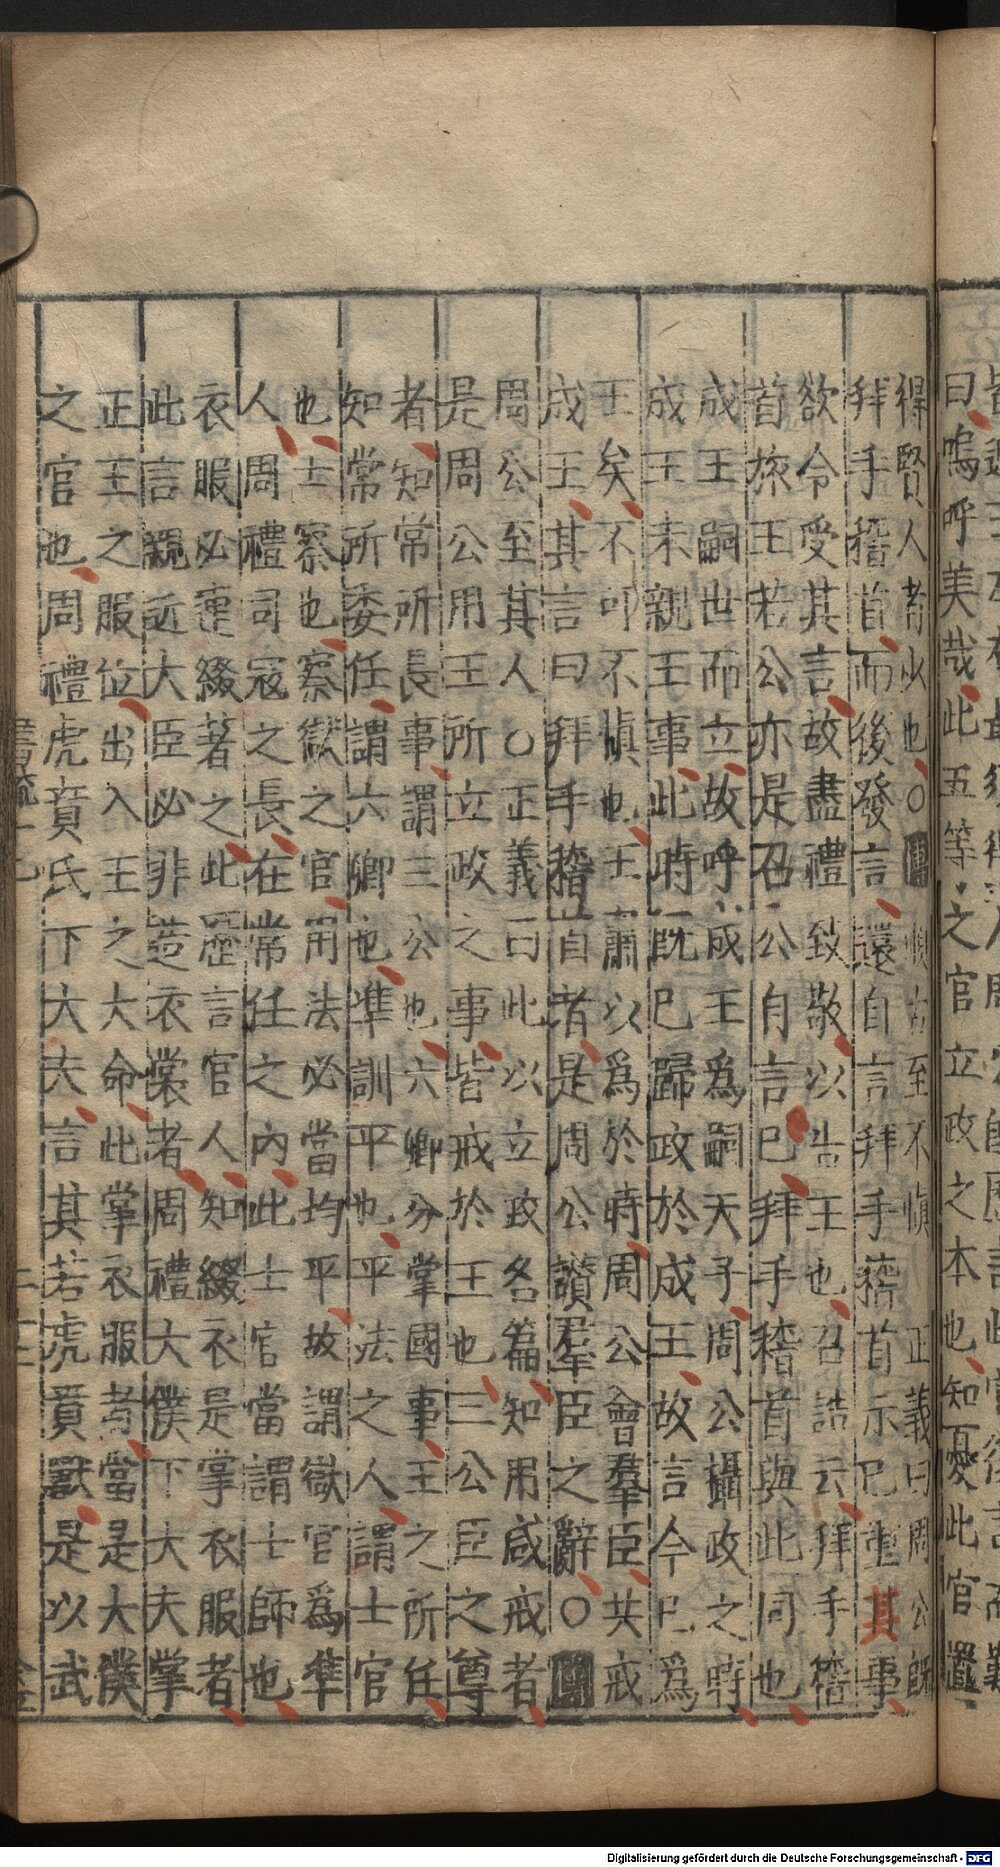 曰嗚呼美哉此五等之官立政之本也知憂此官置
得賢人者少也○傳順古至不慎　正義曰周公既
拜手稽首而後發言還自言拜手稽首示已重其事
欲令受其言故盡禮致敬以告王也召誥云拜手稽
首旅王若公亦是召公自言已拜手稽首與此同也
成王嗣世而立故呼成王爲嗣天子周公攝政之時
成王未親王事此時既已歸政於成王故言今已爲
王矣不可不慎也王肅以爲於時周公會羣臣共戒
成王其言曰拜手稽首者是周公讚羣臣之辭○傳
周公至其人○正義曰此以立政名篇知用咸戒者
是周公用王所立政之事皆戒於王也三公臣之尊
者知常所長事謂三公也六卿分掌國事王之所任
知常所委任謂六卿也準訓平也平法之人謂士官
也士察也察獄之官用法必當均平故謂獄官爲準
人周禮司寇之長在常任之內此士官當謂士師也
衣服必連綴著之此歷言官人知綴衣是掌衣服者
此言親近大臣必非造衣裳者周禮大僕下大夫掌
正王之服位出入王之大命此掌衣服者當是大僕
之官也周禮虎賁氏下大夫言其若虎賁獸是以武